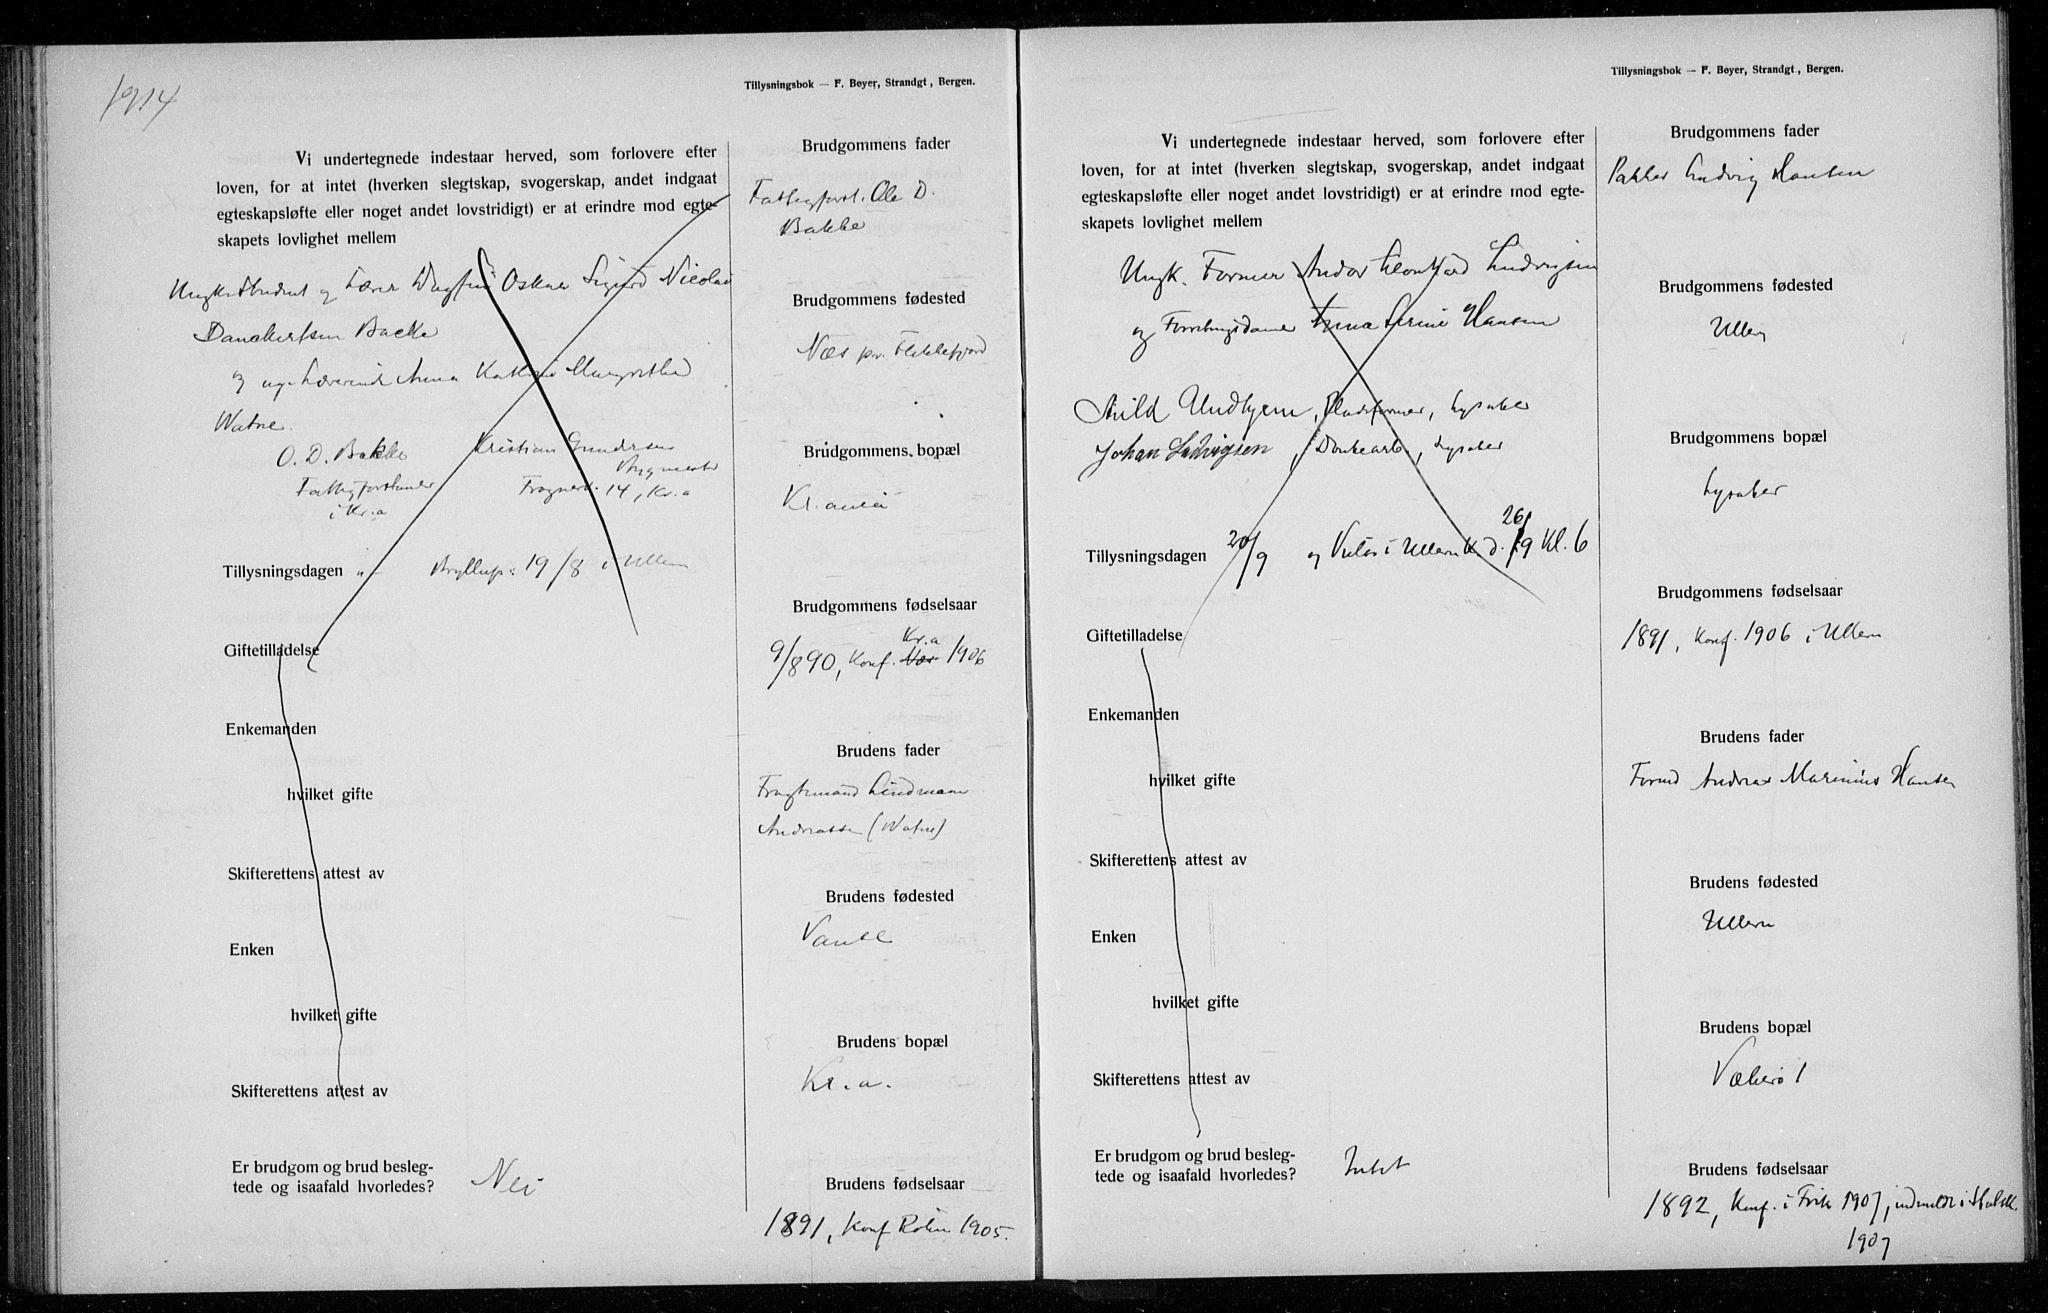 1914
Tillysningsbok — F. Beyer, Strandgt, Bergen.
Vi undertegnede indestaar herved, som forlovere efter
loven, for at intet (hverken slegtskap, svogerskap, andet indgaat
egteskapsløfte eller noget andet lovstridigt) er at erindre mod egte-
skapets lovlighet mellem
Ungk. Student og Lærer Dagfin Oskar Sigurd Nicolai
Danckertsen Bakke
og Lærerinde Anna Katrine Margrethe
Watne.
O. D. Bakke Kristian Gundersen
Fattigforstander Bygmester
i Kr.a Frognerv. 14, Kr.a
Tillysningsdagen Bryllup: 19/8 i Ullern
Giftetilladelse
Enkemanden
hvilket gifte
Skifterettens attest av
Enken
hvilket gifte
Skifterettens attest av
Er brudgom og brud besleg-
tede og isaafald hvorledes? Nei
Brudgommens fader
Fattigforst. Ole D.
Bakke
Brudgommens fødested
Næs pr. Flekkefjord
Brudgommens bopæl
Kr.ania
Brudgommens fødselsaar
Kr.a
9/890, Konf. Næs 1906
Brudens fader
Fragtemand Lindmann
Andreassen (Watne)
Brudens fødested
Vanse
Brudens bopæl
Kr.a.
Brudens fødselsaar
1891, Konf 1905.
Tillysningsbok — F. Beyer, Strandgt, Bergen.
Vi undertegnede indestaar herved, som forlovere efter
loven, for at intet (hverken slegtskap, svogerskap, andet indgaat
egteskapsløfte eller noget andet lovstridigt) er at erindre mod egte-
skapets lovlighet mellem
Ungk. Former Andor Ludvigsen
og Forretningsdame Anna Serine Hansen
Former, Lysaker
Johan Ludvigsen, Lysaker
Tillysningsdagen 20/9 og Vies i Ullern K. d. 26/9 Kl. 6
Giftetilladelse
Enkemanden
hvilket gifte
Skifterettens attest av
Enken
hvilket gifte
Skifterettens attest av
Er brudgom og brud besleg-
tede og isaafald hvorledes? Intet
Brudgommens fader
Pakker Ludvig Hansen
Brudgommens fødested
Ullern
Brudgommens bopæl
Lysaker
Brudgommens fødselsaar
1891, Konf. 1906 i Ullern
Brudens fader
Formd Andreas Marinius Hansen
Brudens fødested
Ullern
Brudens bopæl
Vækerø 1
Brudens fødselsaar
1892, Konf. i Frik 1907, indmeldt i Statsk.
1907